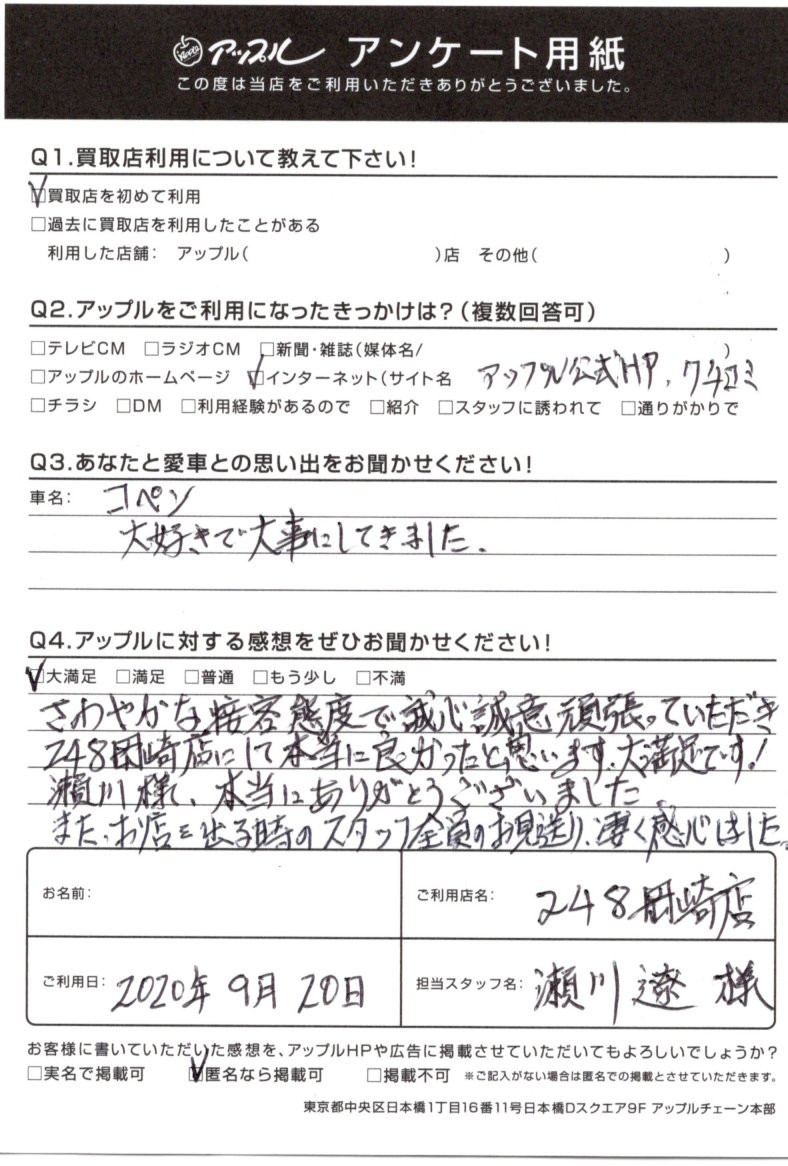 アップル アンケート用紙
この度は当店をご利用いただきありがとうございました。
Q1.買取店利用について教えて下さい!
☑買取店を初めて利用
□過去に買取店を利用したことがある
利用した店舗: アップル( )店 その他( )
Q2.アップルをご利用になったきっかけは?(複数回答可)
□テレビCM □ラジオCM □新聞・雑誌(媒体名/ )
□アップルのホームページ ☑インターネット(サイト名 アップル公式HP、クチコミ
□チラシ □DM □利用経験があるので □紹介 □スタッフに誘われて □通りがかりで
Q3.あなたと愛車との思い出をお聞かせください!
車名: コペン
大好きで大事にしてきました。
Q4.アップルに対する感想をぜひお聞かせください!
☑大満足 □満足 □普通 □もう少し □不満
さわやかな接客態度で誠心誠意頑張っていただき
248岡崎店にして本当に良かったと思います。大満足です!
瀬川様、本当にありがとうございました
また、お店を出る時のスタッフ全員のお見送り、凄く感心しました。
お名前:
ご利用店名: 248岡崎店
ご利用日: 2020年 9月 20日
担当スタッフ名: 瀬川 遼 様
お客様に書いていただいた感想を、アップルHPや広告に掲載させていただいてもよろしいでしょうか?
□実名で掲載可 ☑匿名なら掲載可 □掲載不可 ※ご記入がない場合は匿名での掲載とさせていただきます。
東京都中央区日本橋1丁目16番11号日本橋Dスクエア9F アップルチェーン本部